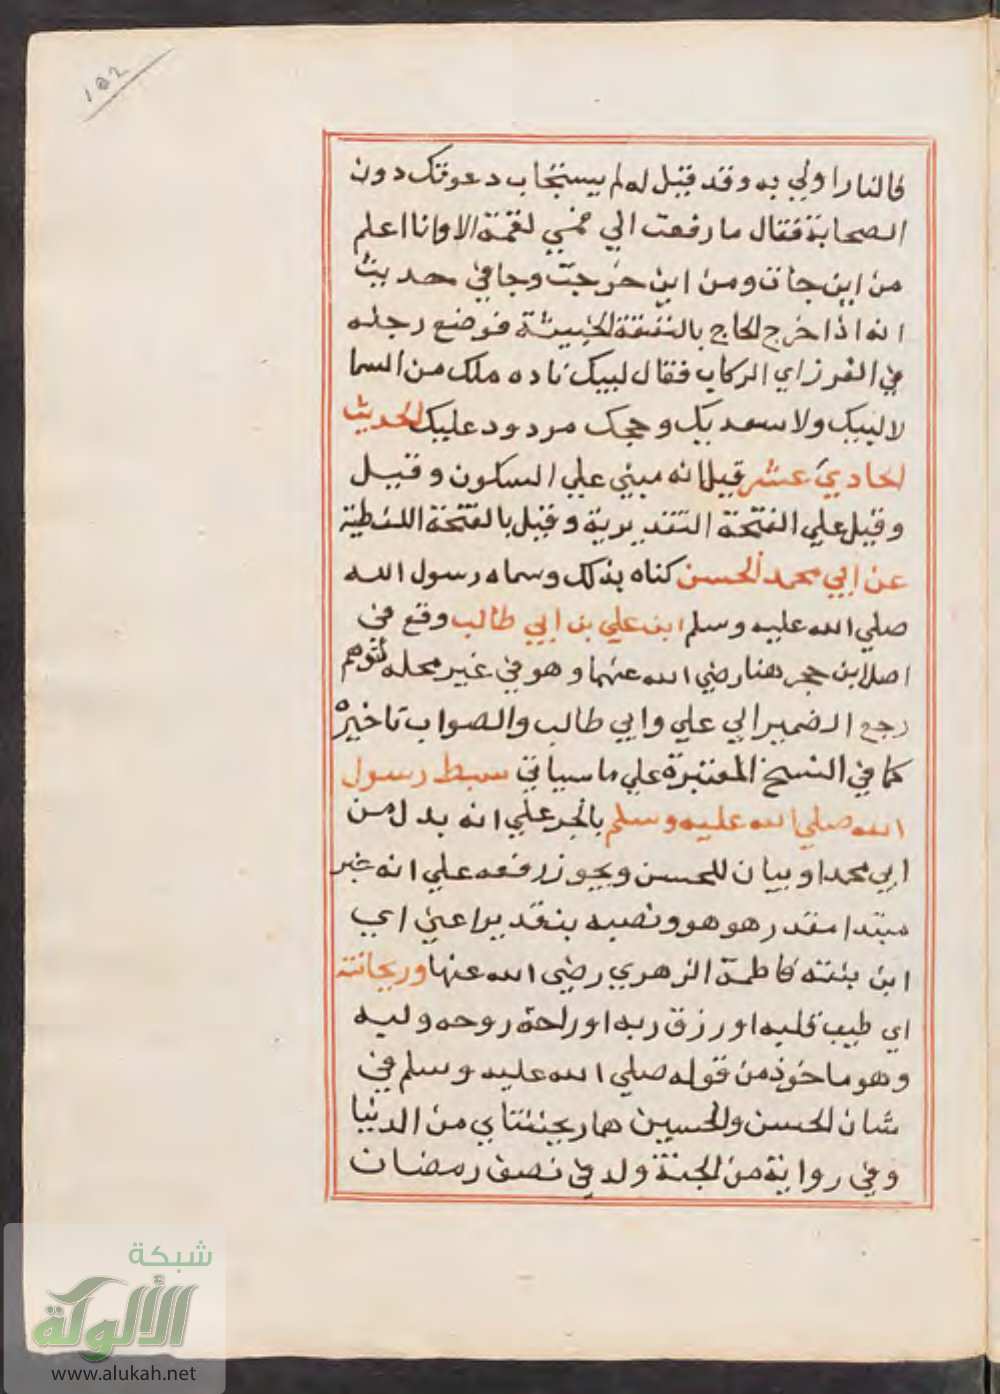 152
فالنار اولي به وقد قيل له لم يستجاب دعوتك دون
الصحابة فقال ما رفعت الي فمي لقمة الا وانا اعلم
من اين جات ومن اين خرجت وجا في حديث
انه اذا خرج الحاج بالنفقة الخبيثة فوضع رجله
في الغرز اي الركاب فقال لبيك ناده ملك من السما
لا لبيك ولا سعديك وحجك مردود عليك الحديث
الحادي عشر قيل انه مبني علي السكون وقيل
وقيل علي الفتحة التقديرية وقيل بالفتحة اللفظية
عن ابي محمد الحسن كناه بذلك وسماه رسول الله
صلي الله عليه وسلم ابن علي بن ابي طالب وقع في
اصل ابن حجر هنا رضي الله عنهما وهو في غير محله لتوهم
رجع الضمير الي علي وابي طالب والصواب تاخيره
كما في النسخ المعتبرة علي ما سياتي سبط رسول
الله صلي الله عليه وسلم بالجر علي انه بدل من
ابي محمد او بيان للحسن ويجوز رفعه علي انه خبر
مبتدا مقدر هو هو ونصبه بتقدير اعني اي
ابن بنته فاطمة الزهري رضي الله عنها وريحانته
اي طيب قلبه او رزق ربه او راحة روحه ولبه
وهو ماخوذ من قوله صلي الله عليه وسلم في
شان الحسن والحسين هما ريحنتاي من الدنيا
وفي رواية من الجنة ولد في نصف رمضان
شبكة
الألوكة
www.alukah.net